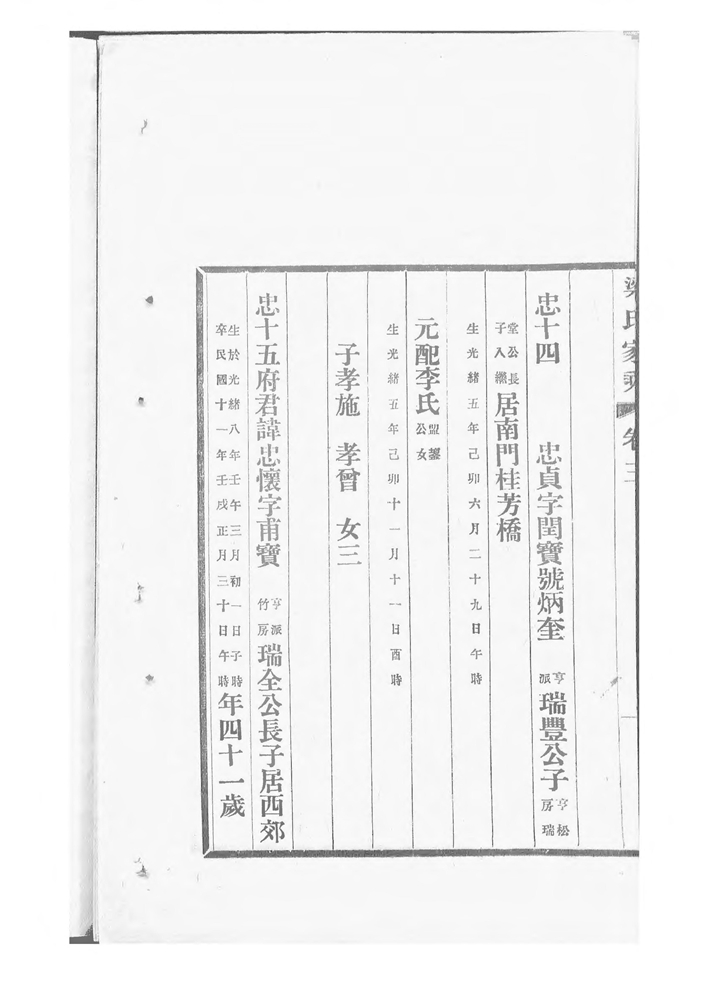 梁氏家乘 卷三
忠十四 忠貞字閏寶號炳奎 亨派 瑞豐公子 亨松房瑞
堂公長子入繼 居南門桂芳橋
生光緒五年己卯六月二十九日午時
元配李氏 盟鑾公女
生光緒五年己卯十一月十一日酉時
子孝施 孝曾 女三
忠十五府君諱忠懷字甫寶 亨派竹房 瑞全公長子居西郊
生於光緒八年壬午三月初一日子時卒民國十一年壬戌正月三十日午時 年四十一歲